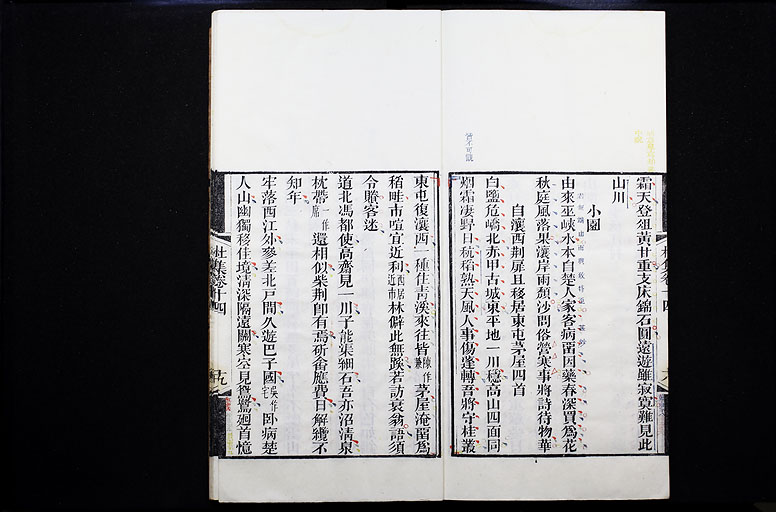 霜天登俎黃甘重支床錦石圓遠遊雖寂寞難見此
山川
小園
由來巫峽水本自楚人家客病留因藥春深買爲花
秋庭風落果瀼岸雨頹沙問俗營寒事將詩待物華
自瀼西荆扉且移居東屯茅屋四首
白鹽危嶠北赤甲古城東平地一川穩高山四面同
烟霜凄野日秔稻熟天風人事傷蓬轉吾將守桂叢
東屯復瀼西一種住靑溪來往皆陳作兼茅屋淹留爲
稻畦市喧宜近利西居近市林僻此無蹊若訪衰翁語須
令賸客迷
道北馮都使高齋見一川子能渠細石吾亦沼淸泉
枕帶一作席還相似柴荆卽有焉斫畬應費日解纜不
知年
牢落西江外參差北戸間久遊巴子國吳作宅卧病楚
人山幽獨移佳境淸深隔遠關寒空見鴛鷺廻首憶
皆不可識
杜集卷十四
十九